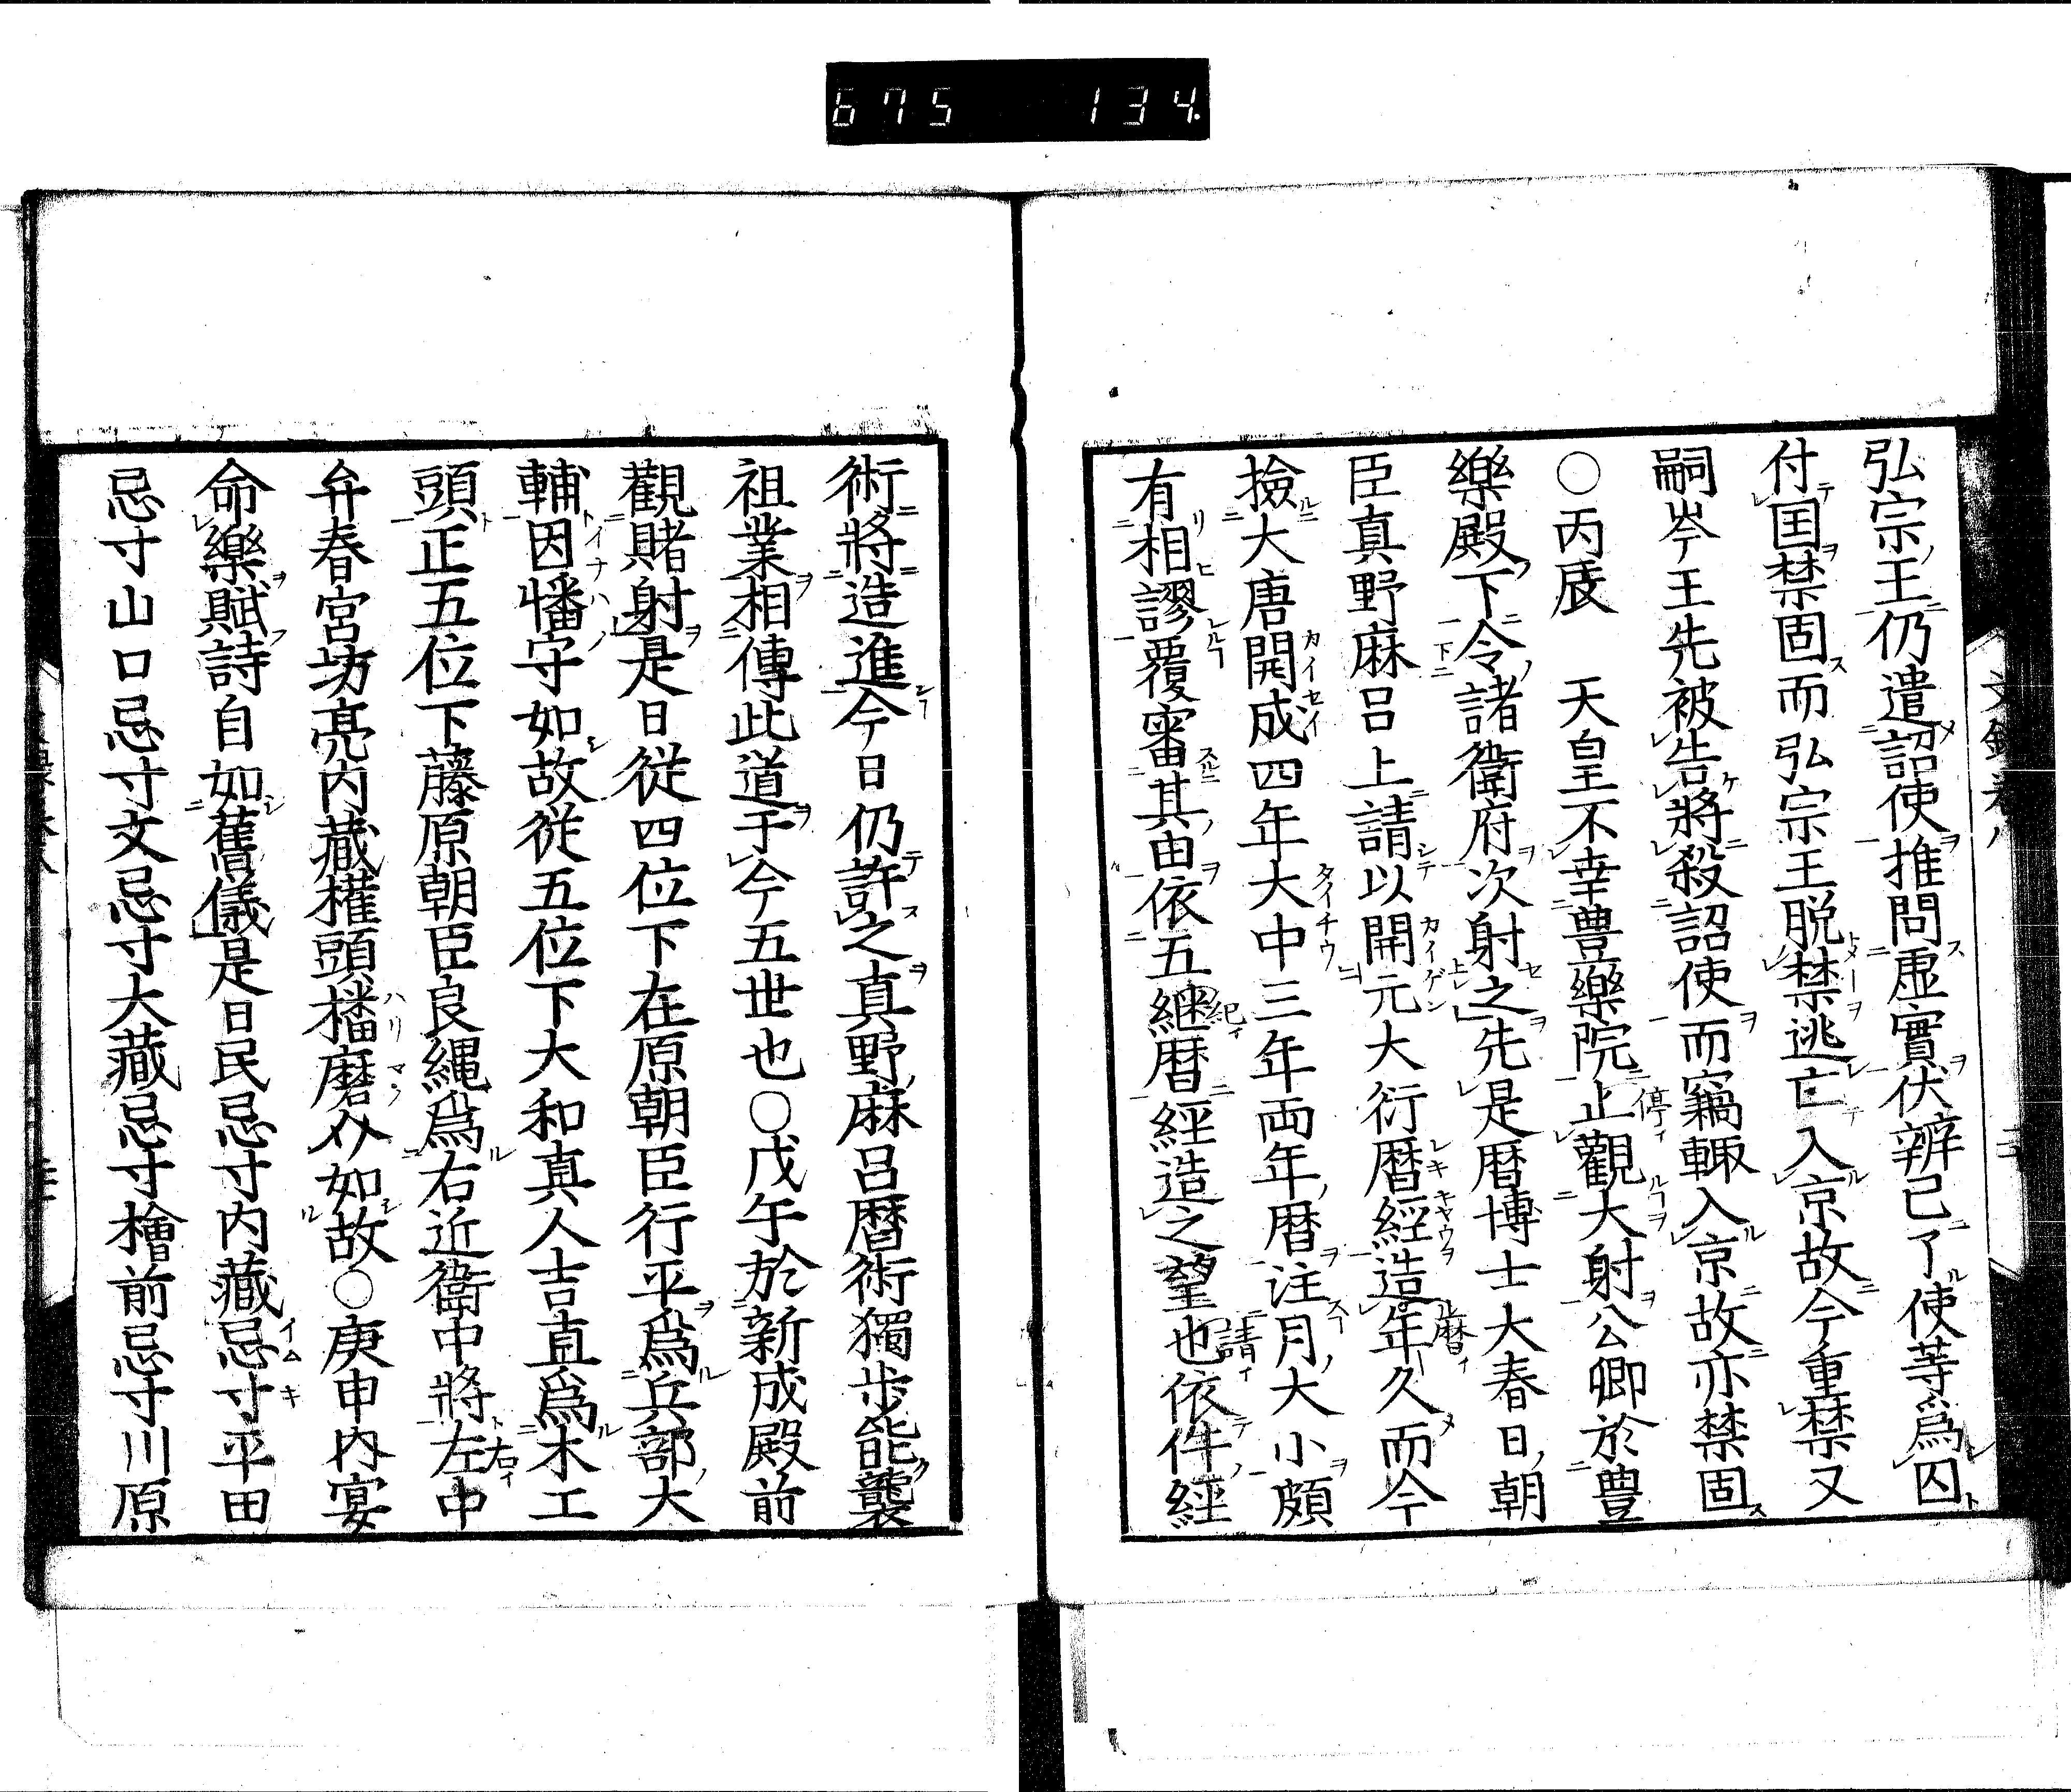 675 134.
弘宗王仍遣詔使推問虛實伏辨已了使等爲囚
付囯禁固而弘宗王脱禁逃亡入京故今重禁又
嗣岑王先被告將殺詔使而竊輙入京故亦禁固
○丙辰 天皇不幸豊樂院止觀大射公卿於豊
樂殿下令諸衛府次射之先是暦博士大春日朝
臣真野麻呂上請以開元大衍暦經造年久而今
撿大唐開成四年大中三年両年暦注月大小頗
有相謬覆審其由依五継暦經造之望也依件經
術將造進今日仍許之真野麻呂暦術獨步能襲
祖業相傳此道于今五世也○戊午於新成殿前
觀賭射是日從四位下在原朝臣行平爲兵部大
輔因幡守如故從五位下大和真人吉直爲木工
頭正五位下藤原朝臣良縄爲右近衛中將左中
弁春宮坊亮内藏權頭播磨介如故○庚申内宴
命樂賦詩自如舊儀是日民忌寸内藏忌寸平田
忌寸山口忌寸文忌寸大藏忌寸檜前忌寸川原